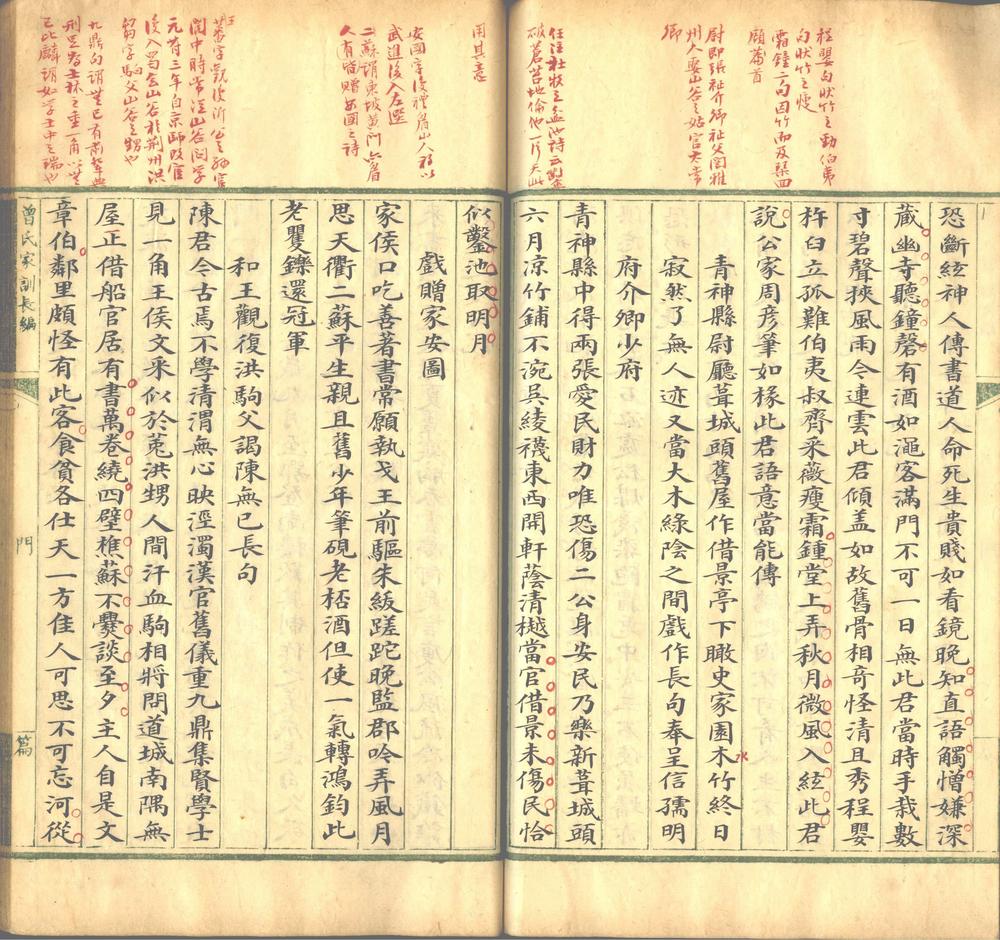 程嬰句狀竹之勁伯夷
句狀竹之瘦
霜鐘二句因竹而及琹四
顧篇首
尉即張祉介卿祉父閤雅
州人娶山谷之姑官太常
卿
任注杜牧之盆池詩云鑿
破蒼苔地偷他一片天此
用其意
恐斷絃神人傳書道人命死生貴賤如看鏡晚知直語觸憎嫌深
藏幽寺聽鐘磬有酒如澠客滿門不可一日無此君當時手栽數
寸碧聲挾風雨今連雲此君傾盖如故舊骨相奇怪清且秀程嬰
杵臼立孤難伯夷叔齊采薇瘦霜鍾堂上弄秋月微風入絃此君
說公家周彥筆如椽此君語意當能傳
青神縣尉廳葺城頭舊屋作借景亭下瞰史家園木竹終日
水
寂然了無人迹又當大木綠陰之間戲作長句奉呈信孺明
府介卿少府
青神縣中得兩張愛民財力唯恐傷二公身安民乃樂新葺城頭
六月凉竹鋪不涴吳綾襪東西開軒蔭清樾當官借景未傷民恰
安國字復禮眉山人初以
武進後入左選
二蘇謂東坡黃門六眉
人有皆贈安國之詩
王蕃字觀復沂公之孫官
閬中時常從山谷問學
元符三年自京師改官
後入蜀会山谷於荊州洪
芻字駒父山谷之甥也
九鼎句謂無己有前輩典
刑足為士林之重一角以無
己比麟謂如學士中之瑞也
似鑿池取明月
戲贈家安圖
家侯口吃善著書常願執戈王前驅朱紱蹉跎晚監郡吟弄風月
思天衢二蘇平生親且舊少年筆硯老桮酒但使一氣轉鴻鈞此
老矍鑠還冠軍
和王觀復洪駒父謁陳無己長句
陳君今古焉不學清渭無心映涇濁漢官舊儀重九鼎集賢學士
見一角王侯文采似於菟洪甥人間汗血駒相將問道城南隅無
屋正借船官居有書萬卷繞四壁樵蘇不爨談至夕主人自是文
章伯鄰里頗怪有此客食貧各仕天一方佳人可思不可忘河從
曾氏家訓長編
門
篇